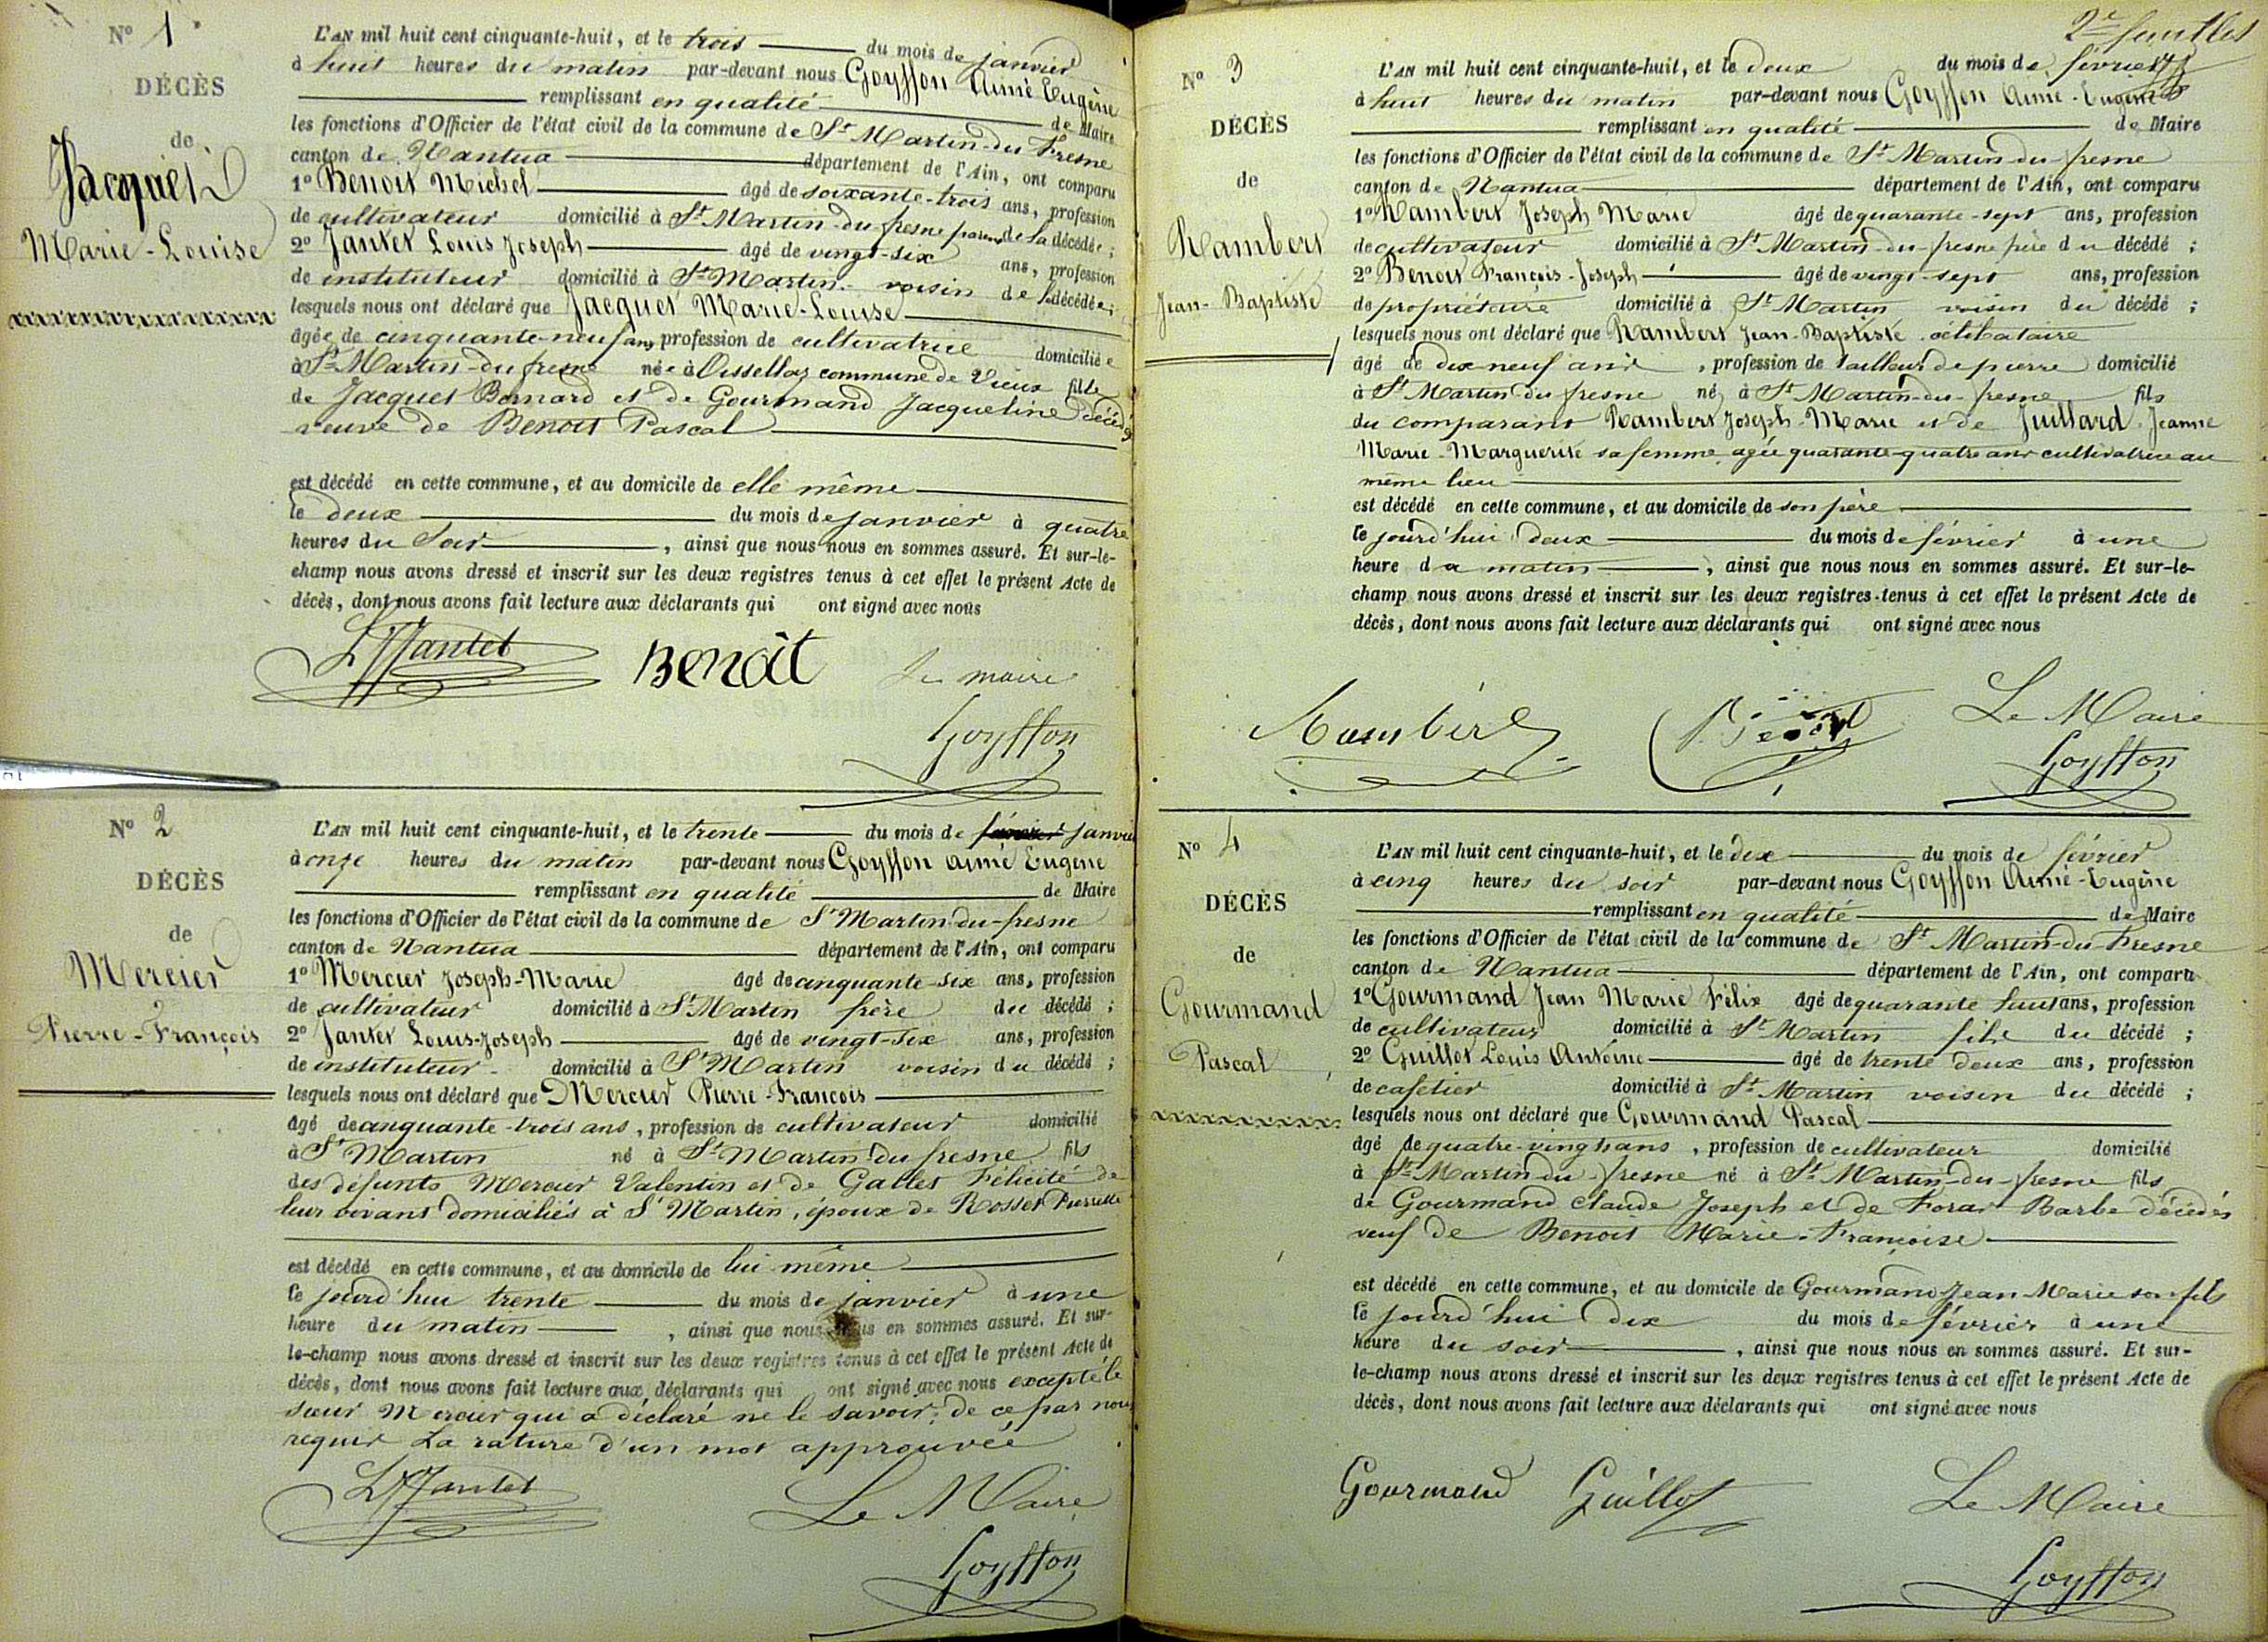 N° 1
DÉCÈS
de
Jacquet
Marie-Louise
L'AN mil huit cent cinquante-huit, et le trois du mois de janvier
à huit heures du matin par-devant nous Goyffon Aimé Eugène
remplissant en qualité de Maire
les fonctions d'Officier de l'état civil de la commune de St Martin-du Fresne
canton de Nantua département de l'Ain, ont comparu
1° Benoit Michel âgé de soixante-trois ans, profession
de cultivateur domicilié à St Martin-du-fresne parent de la décédée ;
2° Jantet Louis Joseph âgé de vingt-six ans, profession
de instituteur domicilié à St Martin voisin de la décédée ;
lesquels nous ont déclaré que Jacquet Marie-Louise
âgée de cinquante-neuf ans, profession de cultivatrice domiciliée
à St Martin-du fresne née à Ossellaz commune de Vieux fille
de Jacquet Bernard et de Gourmand Jacqueline décédés
veuve de Benoit Pascal
est décédé en cette commune, et au domicile de elle même
le deux du mois de janvier à quatre
heures du Soir, ainsi que nous nous en sommes assuré. Et sur-le-
champ nous avons dressé et inscrit sur les deux registres tenus à cet effet le présent Acte de
décès, dont nous avons fait lecture aux déclarants qui ont signé avec nous
L Jantet Benoît Le maire
Goyffon
N° 2
DÉCÈS
de
Mercier
Pierre-François
L'AN mil huit cent cinquante-huit, et le trente du mois de janvier
à onze heures du matin par-devant nous Goyffon Aimé Eugène
remplissant en qualité de Maire
les fonctions d'Officier de l'état civil de la commune de St Martin-du-fresne
canton de Nantua département de l'Ain, ont comparu
1° Mercier Joseph-Marie âgé de cinquante-six ans, profession
de cultivateur domicilié à St Martin frère du décédé ;
2° Jantet Louis-Joseph âgé de vingt-six ans, profession
de instituteur domicilié à St Martin voisin du décédé ;
lesquels nous ont déclaré que Mercier Pierre-François
âgé de cinquante-trois ans, profession de cultivateur domicilié
à St Martin né à St Martin-du fresne fils
des défunts Mercier Valentin et de Gallet Félicité de
leur vivant domiciliés à St Martin, époux de Rosset Pierrette
est décédé en cette commune, et au domicile de lui-même
le jourd'hui trente du mois de janvier à une
heure du matin, ainsi que nous nous en sommes assuré. Et sur-
le-champ nous avons dressé et inscrit sur les deux registres tenus à cet effet le présent Acte de
décès, dont nous avons fait lecture aux déclarants qui ont signé avec nous excepté le
sieur Mercier qui a déclaré ne le savoir, de ce par nous
requis La rature d'un mot approuvée
L Jantet Le Maire
Goyffon
2e feuillet
N° 3
DÉCÈS
de
Rambert
Jean-Baptiste
L'AN mil huit cent cinquante-huit, et le deux du mois de février
à huit heures du matin par-devant nous Goyffon Aimé-Eugène
remplissant en qualité de Maire
les fonctions d'Officier de l'état civil de la commune de St Martin-du-fresne
canton de Nantua département de l'Ain, ont comparu
1° Rambert Joseph Marie âgé de quarante-sept ans, profession
de cultivateur domicilié à St Martin-du-fresne père du décédé ;
2° Benoit François-Joseph âgé de vingt-sept ans, profession
de propriétaire domicilié à St Martin voisin du décédé ;
lesquels nous ont déclaré que Rambert Jean-Baptiste célibataire
âgé de dix-neuf ans, profession de tailleur de pierre domicilié
à St Martin du fresne né à St Martin-du-fresne fils
du comparant Rambert Joseph-Marie et de Juillard Jeanne
Marie-Marguerite sa femme agée quarante-quatre ans cultivatrice au
même lieu
est décédé en cette commune, et au domicile de son père
le jourd'hui deux du mois de février à une
heure du matin, ainsi que nous nous en sommes assuré. Et sur-le-
champ nous avons dressé et inscrit sur les deux registres tenus à cet effet le présent Acte de
décès, dont nous avons fait lecture aux déclarants qui ont signé avec nous
Rambert Le Maire
Goyffon
N° 4
DÉCÈS
de
Gourmand
Pascal
L'AN mil huit cent cinquante-huit, et le dix du mois de février
à cinq heures du soir par-devant nous Goyffon Aimé-Eugène
remplissant en qualité de Maire
les fonctions d'Officier de l'état civil de la commune de St Martin-du Fresne
canton de Nantua département de l'Ain, ont comparu
1° Gourmand Jean Marie Félix âgé de quarante huit ans, profession
de cultivateur domicilié à St Martin fils du décédé ;
2° Guillot Louis Antoine âgé de trente deux ans, profession
de cafetier domicilié à St Martin voisin du décédé ;
lesquels nous ont déclaré que Gourmand Pascal
âgé de quatre-vingts ans, profession de cultivateur domicilié
à St Martin-du-fresne né à St Martin-du-fresne fils
de Gourmand Claude Joseph et de Forar Barbe décédés
veuf de Benoit Marie-Françoise
est décédé en cette commune, et au domicile de Gourmand Jean-Marie son fils
le jourd'hui dix du mois de février à une
heure du soir, ainsi que nous nous en sommes assuré. Et sur-
le-champ nous avons dressé et inscrit sur les deux registres tenus à cet effet le présent Acte de
décès, dont nous avons fait lecture aux déclarants qui ont signé avec nous
Gourmand Guillot Le Maire
Goyffon